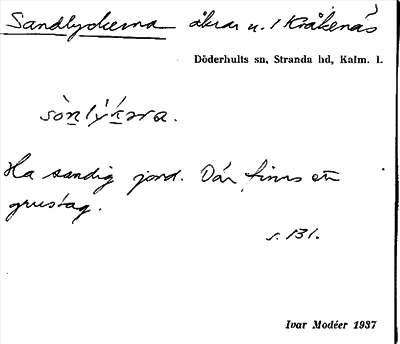 Sandlyckerna åkrar u. 1 Kråkenäs
Döderhults sn, Stranda hd, Kalm. l.
Ha sandig jord. Där finns ett
grustag.
s. 131.
Ivar Modéer 1937